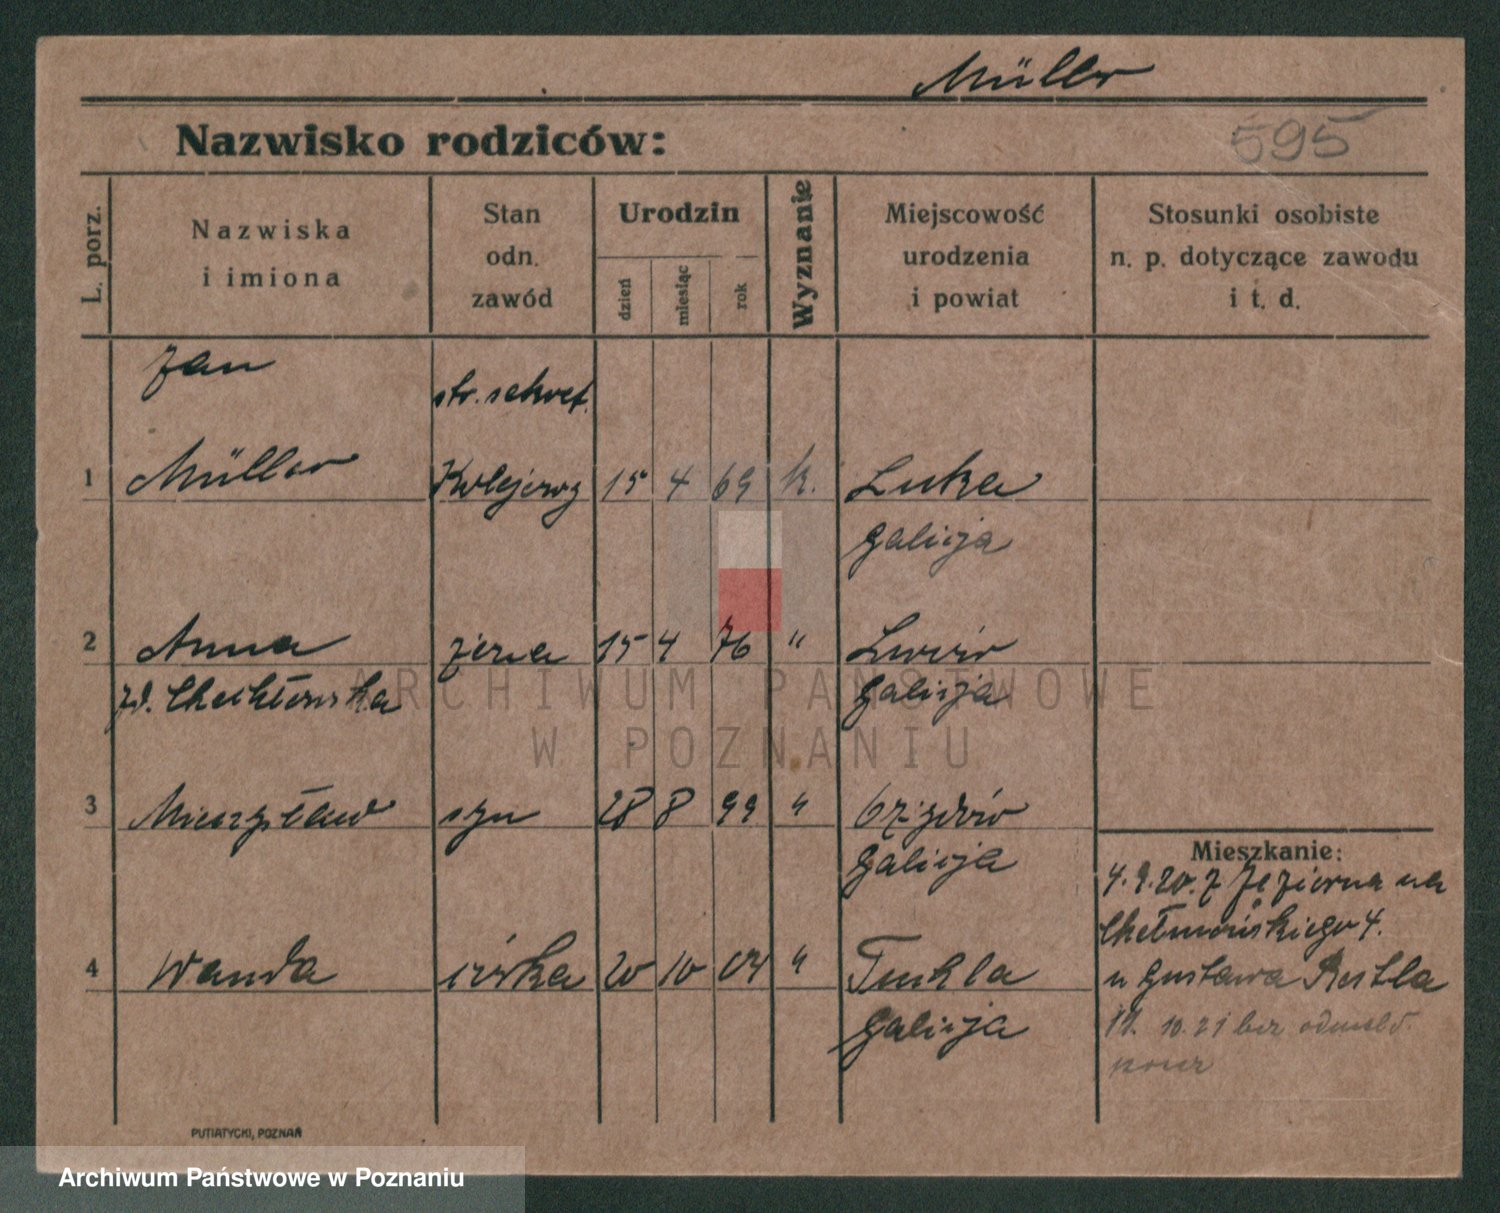 Müller
Nazwisko rodziców:
595
L. porz.
Nazwiska
i imiona
Stan
odn.
zawód
Urodzin
dzień
miesiąc
rok
Wyznanie
Miejscowość
urodzenia
i powiat
Stosunki osobiste
n. p. dotyczące zawodu
i t. d.
Jan
str. sekret.
1 Müller Kolejowy 15 4 69 k. Luka
Galicja
2 Anna żona 15 4 76 " Lwów
Galicja
3 Mieczysław syn 28 8 99 "
Galicja
Mieszkanie:
4. 9. 20. z Jeziorna na
Chełmońskiego 4.
u Gustawa
4 Wanda córka 20 10 04 " Tuchla
Galicja
10. 21 bez
PUTIATYCKI, POZNAŃ
ARCHIWUM PAŃSTWOWE
W POZNANIU
Archiwum Państwowe w Poznaniu